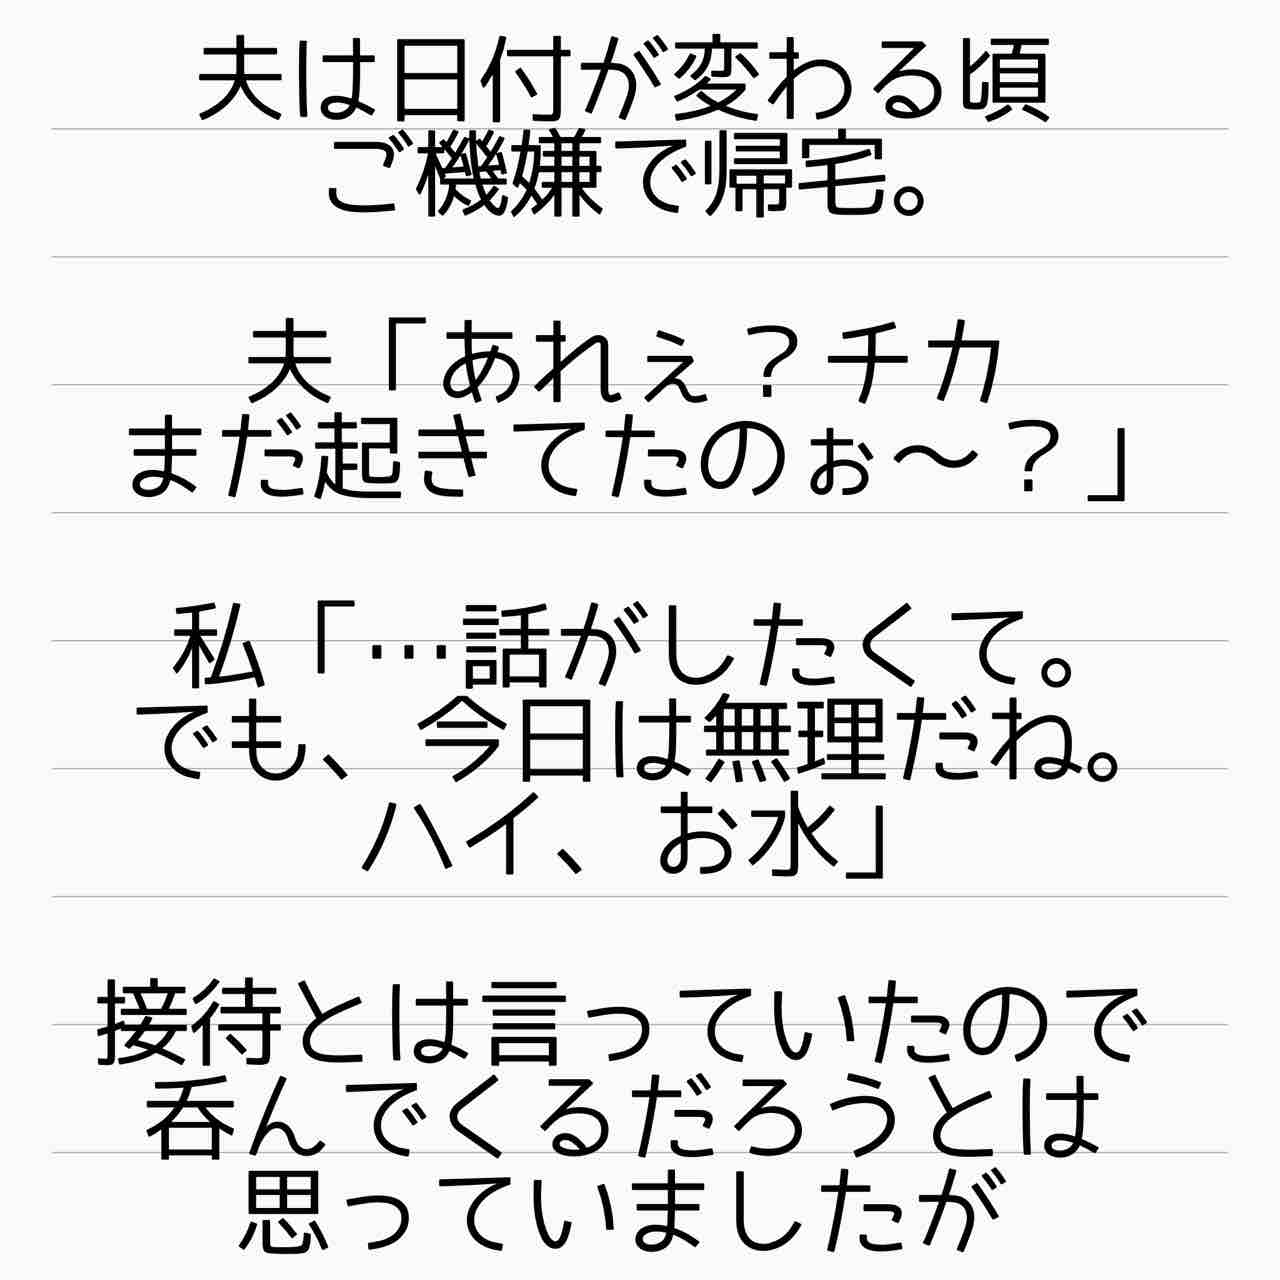 夫は日付が変わる頃
ご機嫌で帰宅。
夫「あれぇ？チカ
まだ起きてたのぉ〜？」
私「…話がしたくて。
でも、今日は無理だね。
ハイ、お水」
接待とは言っていたので
呑んでくるだろうとは
思っていましたが